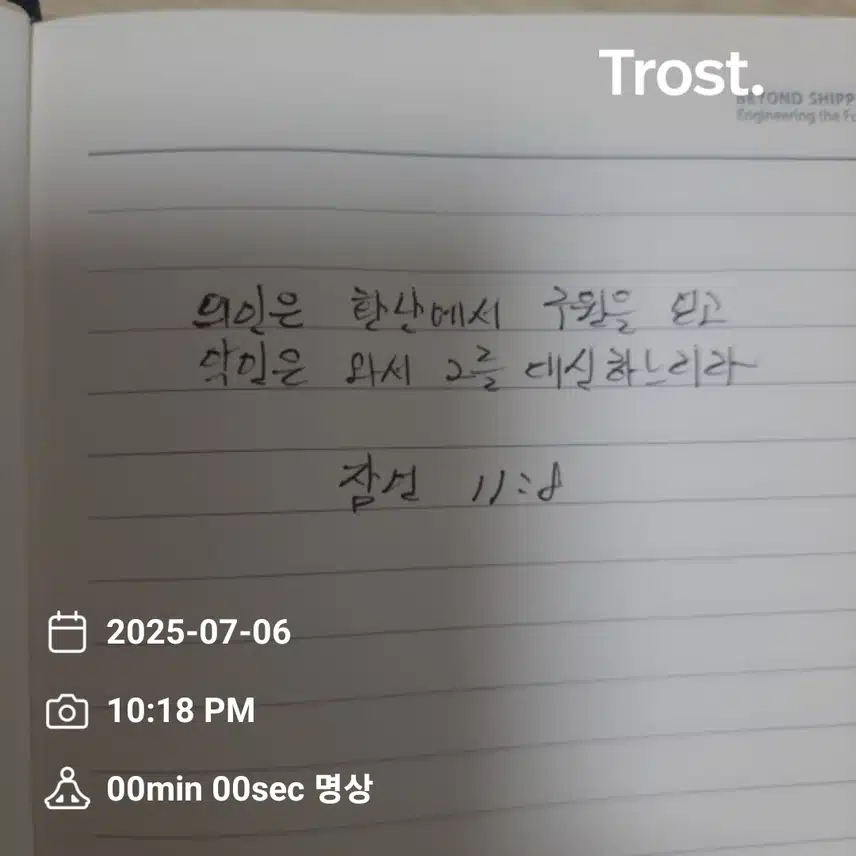 Trost.
BEYOND SHIPP
Engineering the Fu
의인은 환난에서 구원을 얻고
악인은 와서 그를 대신하느니라
잠언 11:8
2025-07-06
10:18 PM
00min 00sec 명상